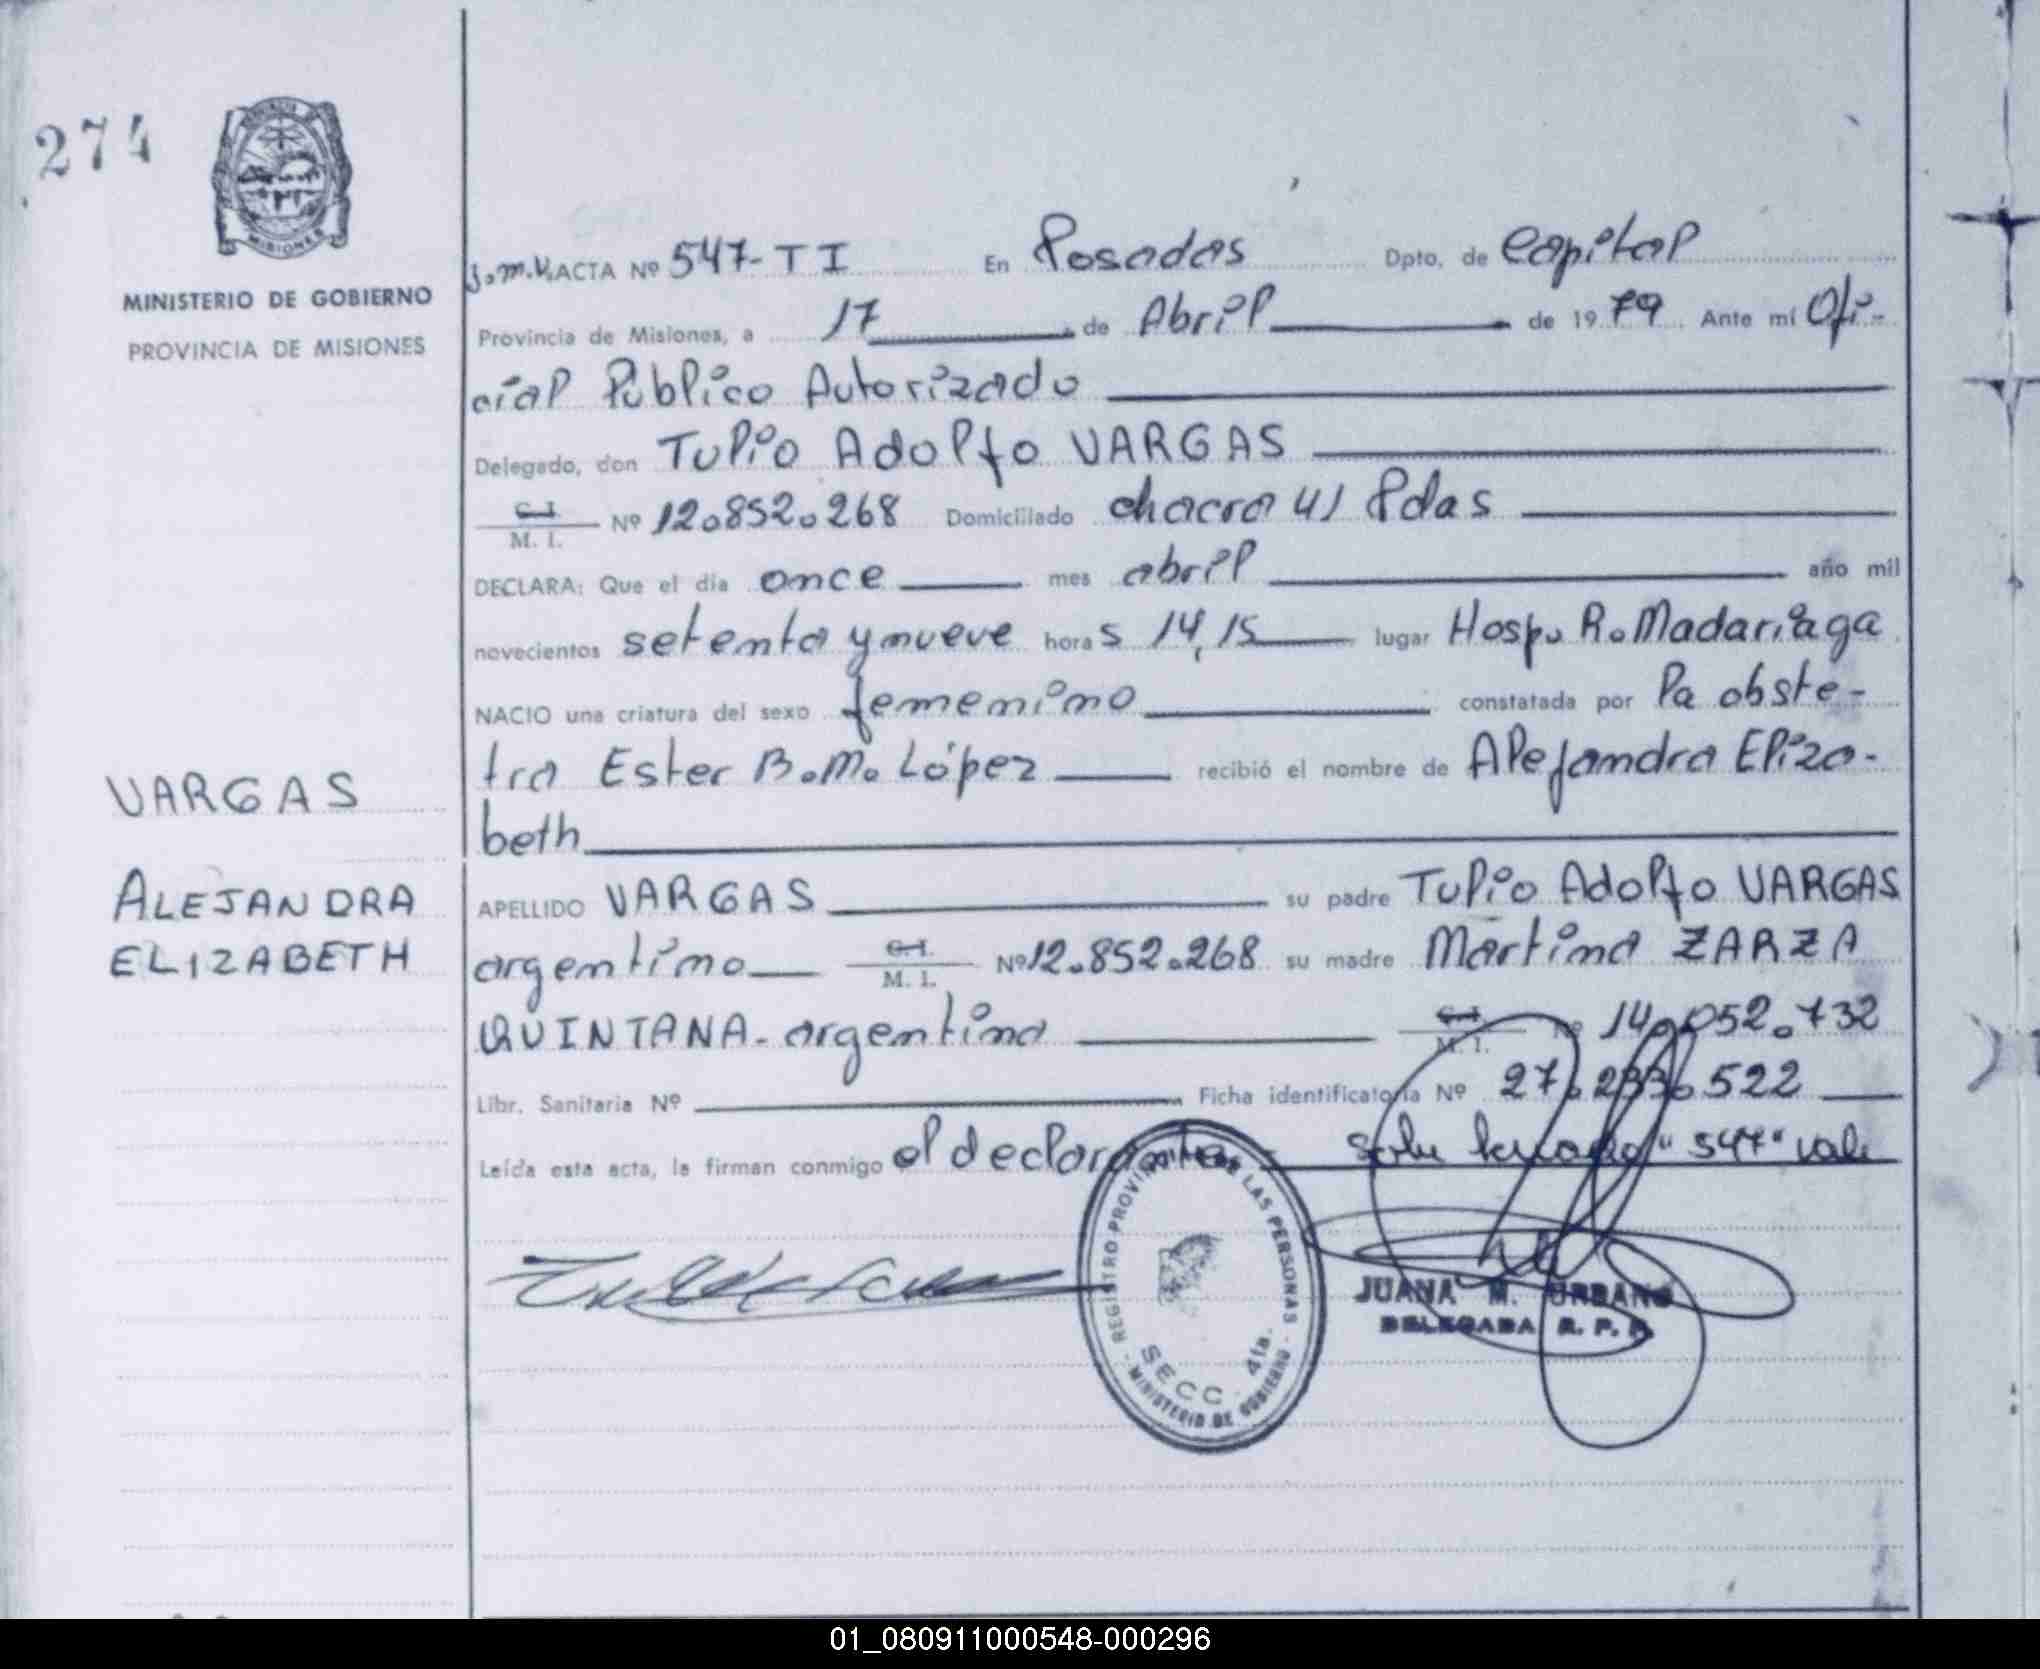 274
MISIONES
MINISTERIO DE GOBIERNO
PROVINCIA DE MISIONES
J.M.V. ACTA Nº 547-T I En Posadas Dpto. de Capital
Provincia de Misiones, a 17 de Abril de 1979 Ante mí Ofi-
cial Publico Autorizado
Delegado, don Tulio Adolfo VARGAS
C.I. M. I. Nº 12.852.268 Domiciliado chacra 41 Pdas
DECLARA: Que el día once mes abril año mil
novecientos setenta y nueve horas 14,15 lugar Hosp. R. Madariaga
NACIO una criatura del sexo femenino constatada por la obste-
tra Ester B.M. López recibió el nombre de Alejandra Eliza-
beth
VARGAS
ALEJANDRA
ELIZABETH
APELLIDO VARGAS su padre Tulio Adolfo VARGAS
argentino C.I. M. I. Nº 12.852.268 su madre Martina ZARZA
QUINTANA- argentina C.I. M. I. Nº 14.052.732
Libr. Sanitaria Nº Ficha identificatoria Nº 27.233.522
Leída esta acta, la firman conmigo el declarante "547" vale
REGISTRO PROVINCIAL DE LAS PERSONAS
SECC. 4ta.
MINISTERIO DE GOBIERNO
JUANA M. URBANO
DELEGADA R. P. P.
01_080911000548-000296